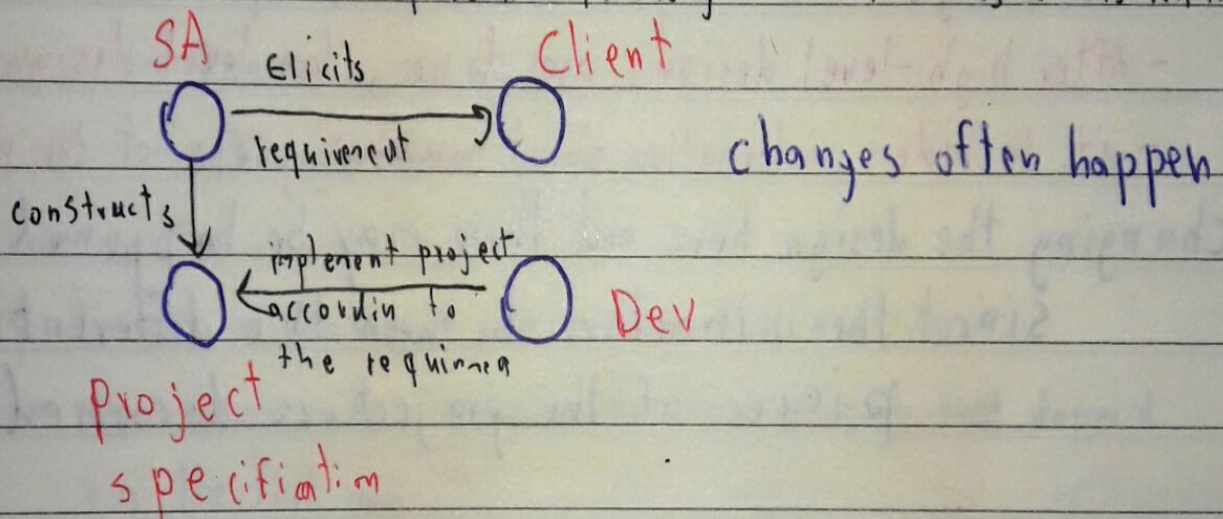 SA
Client
Elicits
requirement
changes often happen
constructs
implement project
accordin to
the requirmen
Dev
Project
specifiation